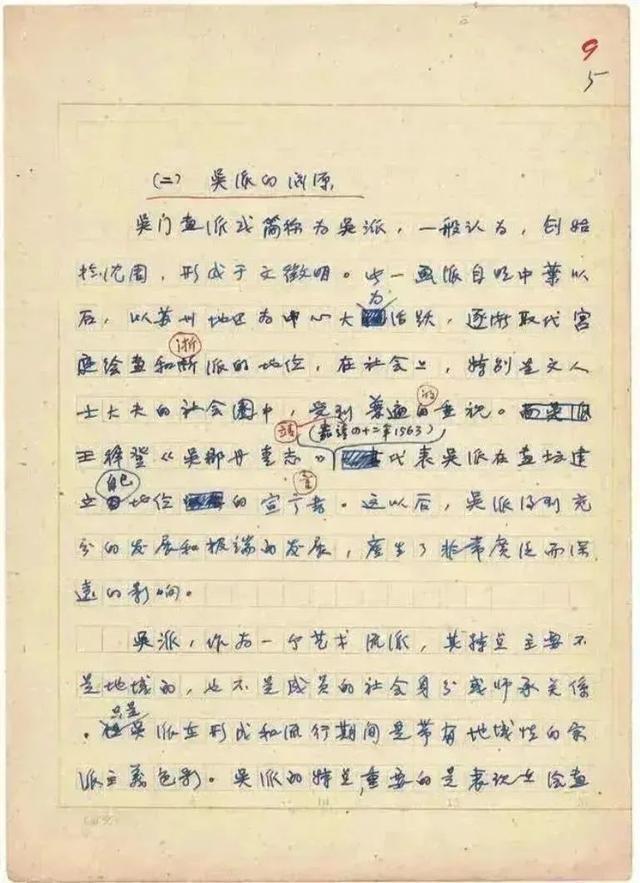 9
5
(二) 吴派的渊源
吴门画派或简称为吴派，一般认为，创始
於沈周，形成于文徵明。此一画派自明中葉以
后，以苏州地区为中心大为活跃，逐渐取代宫
庭绘画和浙派的地位，在社会上，特别是文人
士大夫的社会圈中，受到普遍的重视。
王穉登《吴郡丹青志》（嘉靖四十二年1563）代表吴派在画坛建
立自己地位的宣言者。这以后，吴派得到充
分的发展和极端的发展，产生了非常广泛而深
远的影响。
吴派，作为一个艺术流派，其特点主要不
是地域的，也不是成员的社会身分或师承关係
．只是吴派在形成和流行期间是带有地域性的宗
派主義色彩。吴派的特点，重要的是表现在绘画